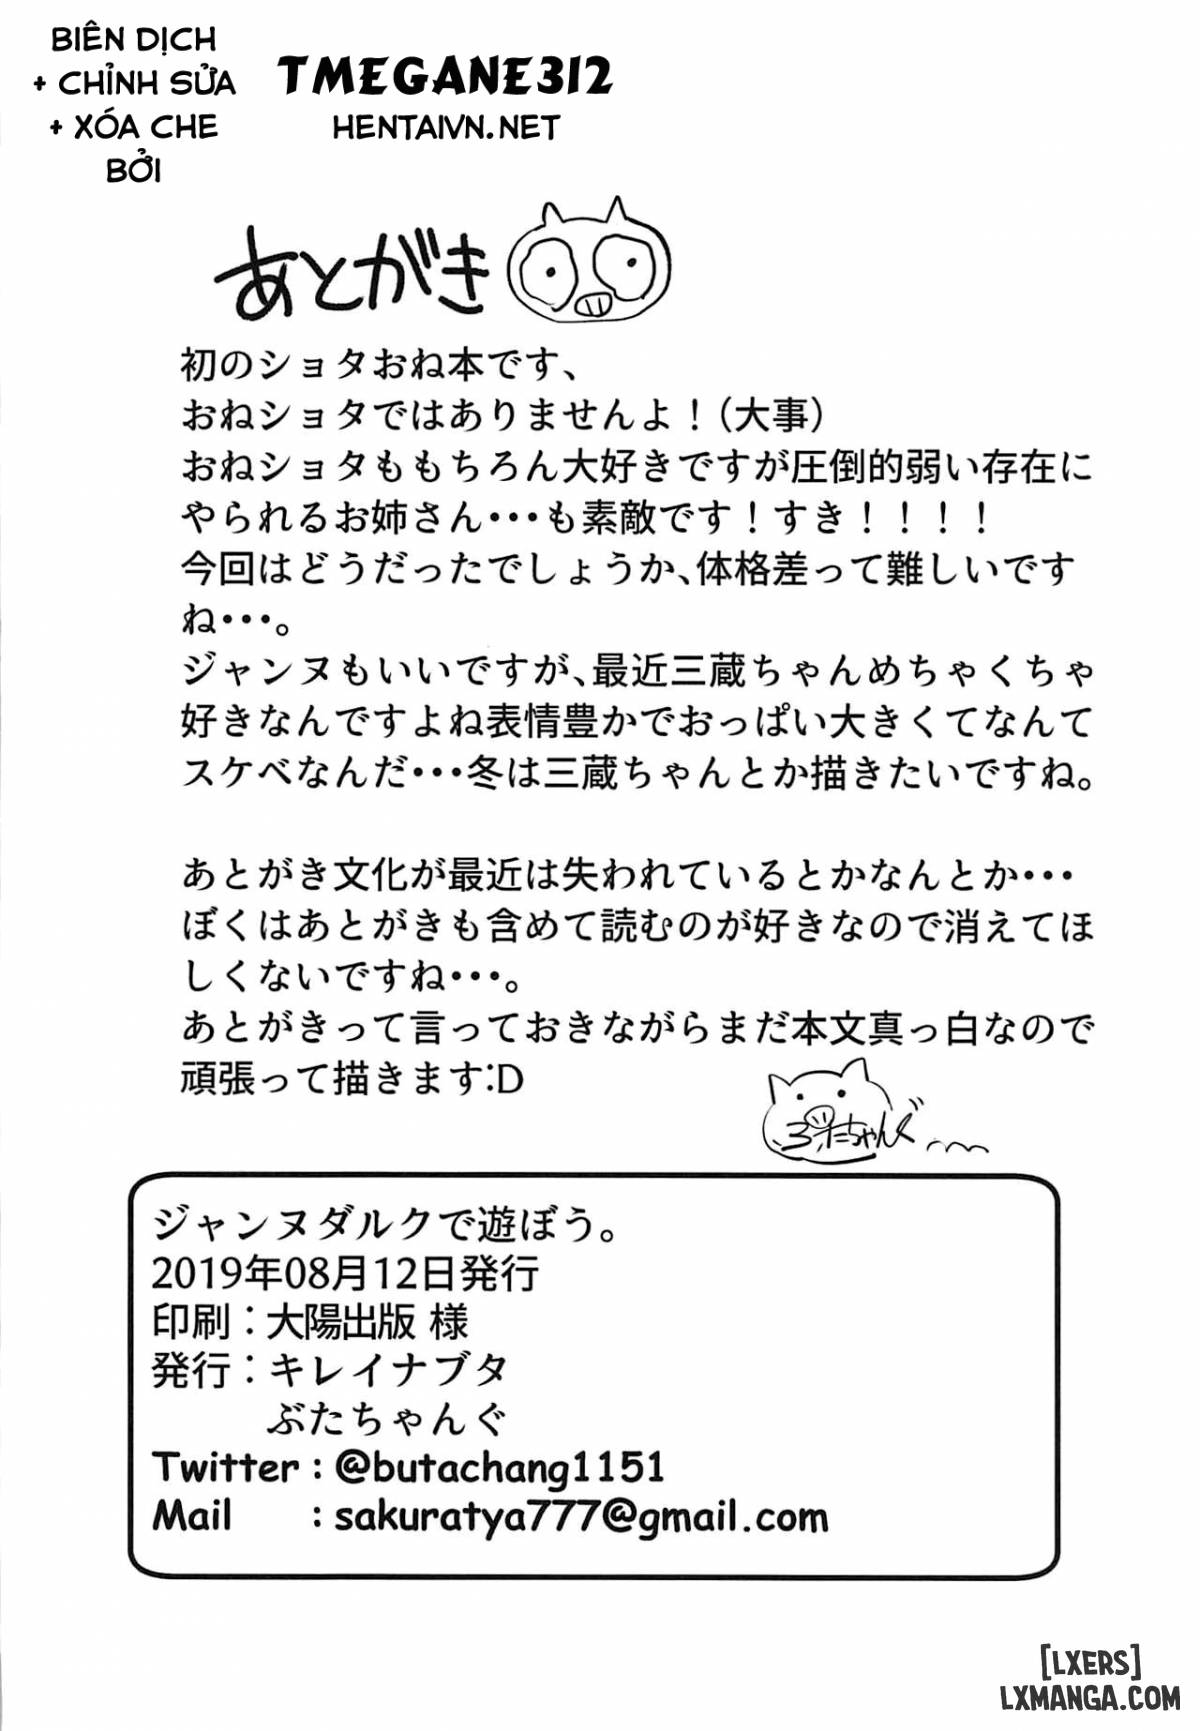 BIÊN DỊCH
+ CHỈNH SỬA
+ XÓA CHE
BỞI
TMEGANE312
HENTAIVN.NET
あとがき
初のショタおね本です、
おねショタではありませんよ！（大事）
おねショタももちろん大好きですが圧倒的弱い存在に
やられるお姉さん・・・も素敵です！すき！！！！
今回はどうだったでしょうか、体格差って難しいです
ね・・・。
ジャンヌもいいですが、最近三蔵ちゃんめちゃくちゃ
好きなんですよね表情豊かでおっぱい大きくてなんて
スケベなんだ・・・冬は三蔵ちゃんとか描きたいですね。
あとがき文化が最近は失われているとかなんとか・・・
ぼくはあとがきも含めて読むのが好きなので消えてほ
しくないですね・・・。
あとがきって言っておきながらまだ本文真っ白なので
頑張って描きます:D
ジャンヌダルクで遊ぼう。
2019年08月12日発行
印刷：大陽出版 様
発行：キレイナブタ
ぶたちゃんぐ
Twitter : @butachang1151
Mail : sakuratya777@gmail.com
[LXERS]
LXMANGA.COM